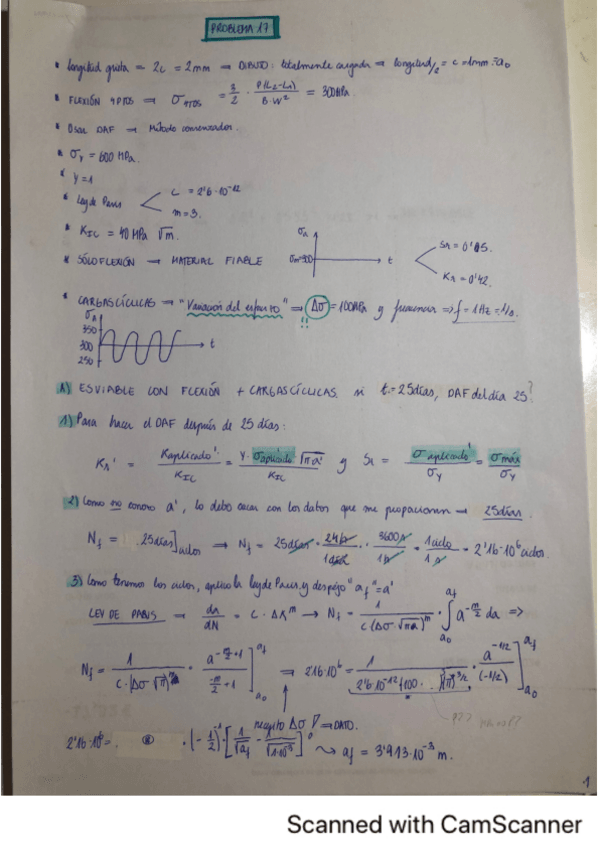 PROBLEMA 17
* Longitud grieta = 2c = 2mm → DIBUJO: totalmente cargada → longitud/2 = c = 1mm = a₀
* FLEXIÓN 4PTOS → σ4PTOS = 3/2 · P(L₂-L₁)/B·W² = 300MPa
* Usar DAF → Método conservador.
* σy = 600 MPa.
* Y = 1
* Ley de Paris < C = 2'6·10⁻¹²
m = 3.
* KIC = 40 MPa √m.
* SÓLO FLEXIÓN → MATERIAL FIABLE
t
Sr = 0'5.
Kr = 0'42.
* CARGAS CÍCLICAS → "Variación del esfuerzo" → Δσ = 100MPa y frecuencia → f = 1Hz = 1/s.
!!
350
300
250
t
A) ES VIABLE CON FLEXIÓN + CARGAS CÍCLICAS. si t = 25días, DAF del día 25?
1) Para hacer el DAF después de 25 días:
Kr' = Kaplicado'/KIC = Y·σaplicado·√πa'/KIC y Sr = σaplicado'/σy = σmáx/σy
2) Como no conozco a', lo debo sacar con los datos que me proporcionan → 25días.
Nf = 25días]ciclos → Nf = 25días · 24h/1día · 3600s/1h · 1ciclo/1s = 2'16·10⁶ ciclos.
3) Como tenemos los ciclos, aplico la ley de Paris y despejo "af" = a'
LEY DE PARIS → da/dN = C·ΔKᵐ → Nf = 1/C(Δσ·√πa)ᵐ · ∫ a₀ af a^(-m/2) da ⇒
Nf = 1/C·(Δσ·√π)ᵐ · a^(-m/2+1)/(-m/2+1)] a₀ af → 2'16·10⁶ = 1/2'6·10⁻¹²(100· )(π)^(3/2) · a^(-1/2)/(-1/2)] a₀ af
necesito Δσ → DATO.
2'16·10⁶ = · (-1/2)⁻¹ · [1/√af - 1/√1·10⁻³] → af = 3'913·10⁻³ m.
1
Scanned with CamScanner